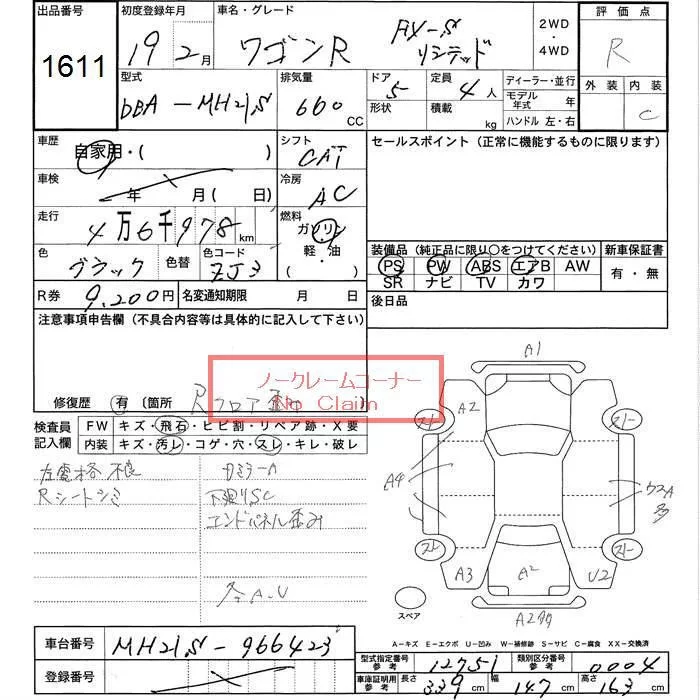 出品番号 初度登録年月 車名・グレード 評価点
1611 19 2月 ワゴンR FX-S リミテッド 2WD・4WD R
型式 排気量 ドア 定員 ディーラー・並行 外装 内装
DBA-MH21S 660 CC 5 4人 モデル年式 年 C
形状 積載 kg ハンドル 左・右
車歴 自家用・( ) シフト CAT セールスポイント (正常に機能するものに限ります)
車検 年 月(日) 冷房 AC
走行 4万6千978km 燃料 ガソリン 軽・油
色 ブラック 色替 色コード ZJ3
装備品 (純正品に限り○をつけてください) 新車保証書
PS PW ABS エアB AW 有・無
SR ナビ TV カワ
R券 9,200円 名変通知期限 月 日 後日品
注意事項申告欄 (不具合内容等は具体的に記入して下さい)
ノークレームコーナー
No Claim
修復歴 有 〔箇所 Rフロア 〕
検査員記入欄 FW キズ・飛石・ヒビ割・リペア跡・X要
内装 キズ・汚レ・コゲ・穴・スレ・キレ・破レ
左電格不良
Rシートシミ
下廻りSC
エンドパネル歪み
各A.U
A1
A2
A4
A3
A2
U2
A2多
スペア
A-キズ E-エクボ U-凹み W-補修跡 S-サビ C-腐食 XX-交換済
車台番号 MH21S-966423
登録番号
型式指定番号 参考 12751 類別区分番号 参考 0004
車庫証明用 参考 長さ 339cm 幅 147cm 高さ 163cm